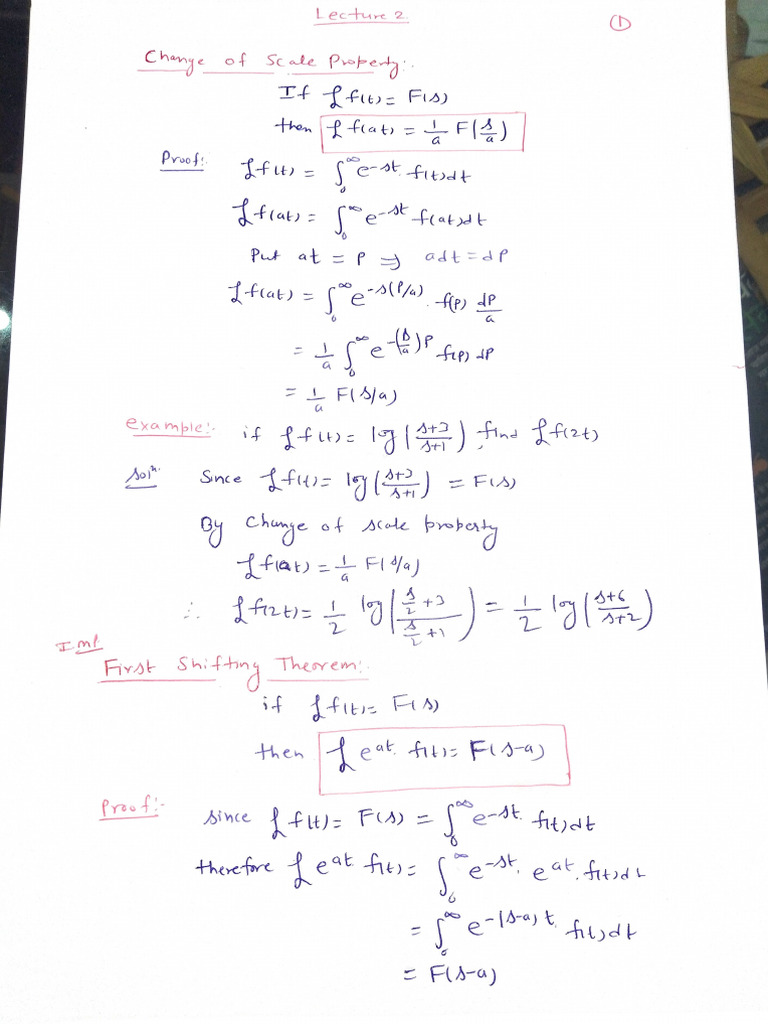 Lecture 2
①
Change of Scale Property:.
If ℒ f(t) = F(s)
then ℒ f(at) = 1/a F(s/a)
Proof:. ℒ f(t) = ∫₀^∞ e^-st. f(t)dt
ℒ f(at) = ∫₀^∞ e^-st f(at)dt
Put at = P ⇒ adt = dP
ℒ f(at) = ∫₀^∞ e^-s(P/a). f(P) dP/a
= 1/a ∫₀^∞ e^-(s/a)P f(P) dP
= 1/a F(s/a)
example:. if ℒ f(t) = log(s+3/s+1), find ℒ f(2t)
Solⁿ. Since ℒ f(t) = log(s+3/s+1) = F(s)
By Change of scale property
ℒ f(at) = 1/a F(s/a)
∴ ℒ f(2t) = 1/2 log((s/2 +3)/(s/2 +1)) = 1/2 log(s+6/s+2)
Imp.
First Shifting Theorem:.
if ℒ f(t) = F(s)
then ℒ e^at. f(t) = F(s-a)
Proof:- since ℒ f(t) = F(s) = ∫₀^∞ e^-st. f(t)dt
therefore ℒ e^at. f(t) = ∫₀^∞ e^-st. e^at. f(t)dt
= ∫₀^∞ e^-(s-a)t. f(t)dt
= F(s-a)